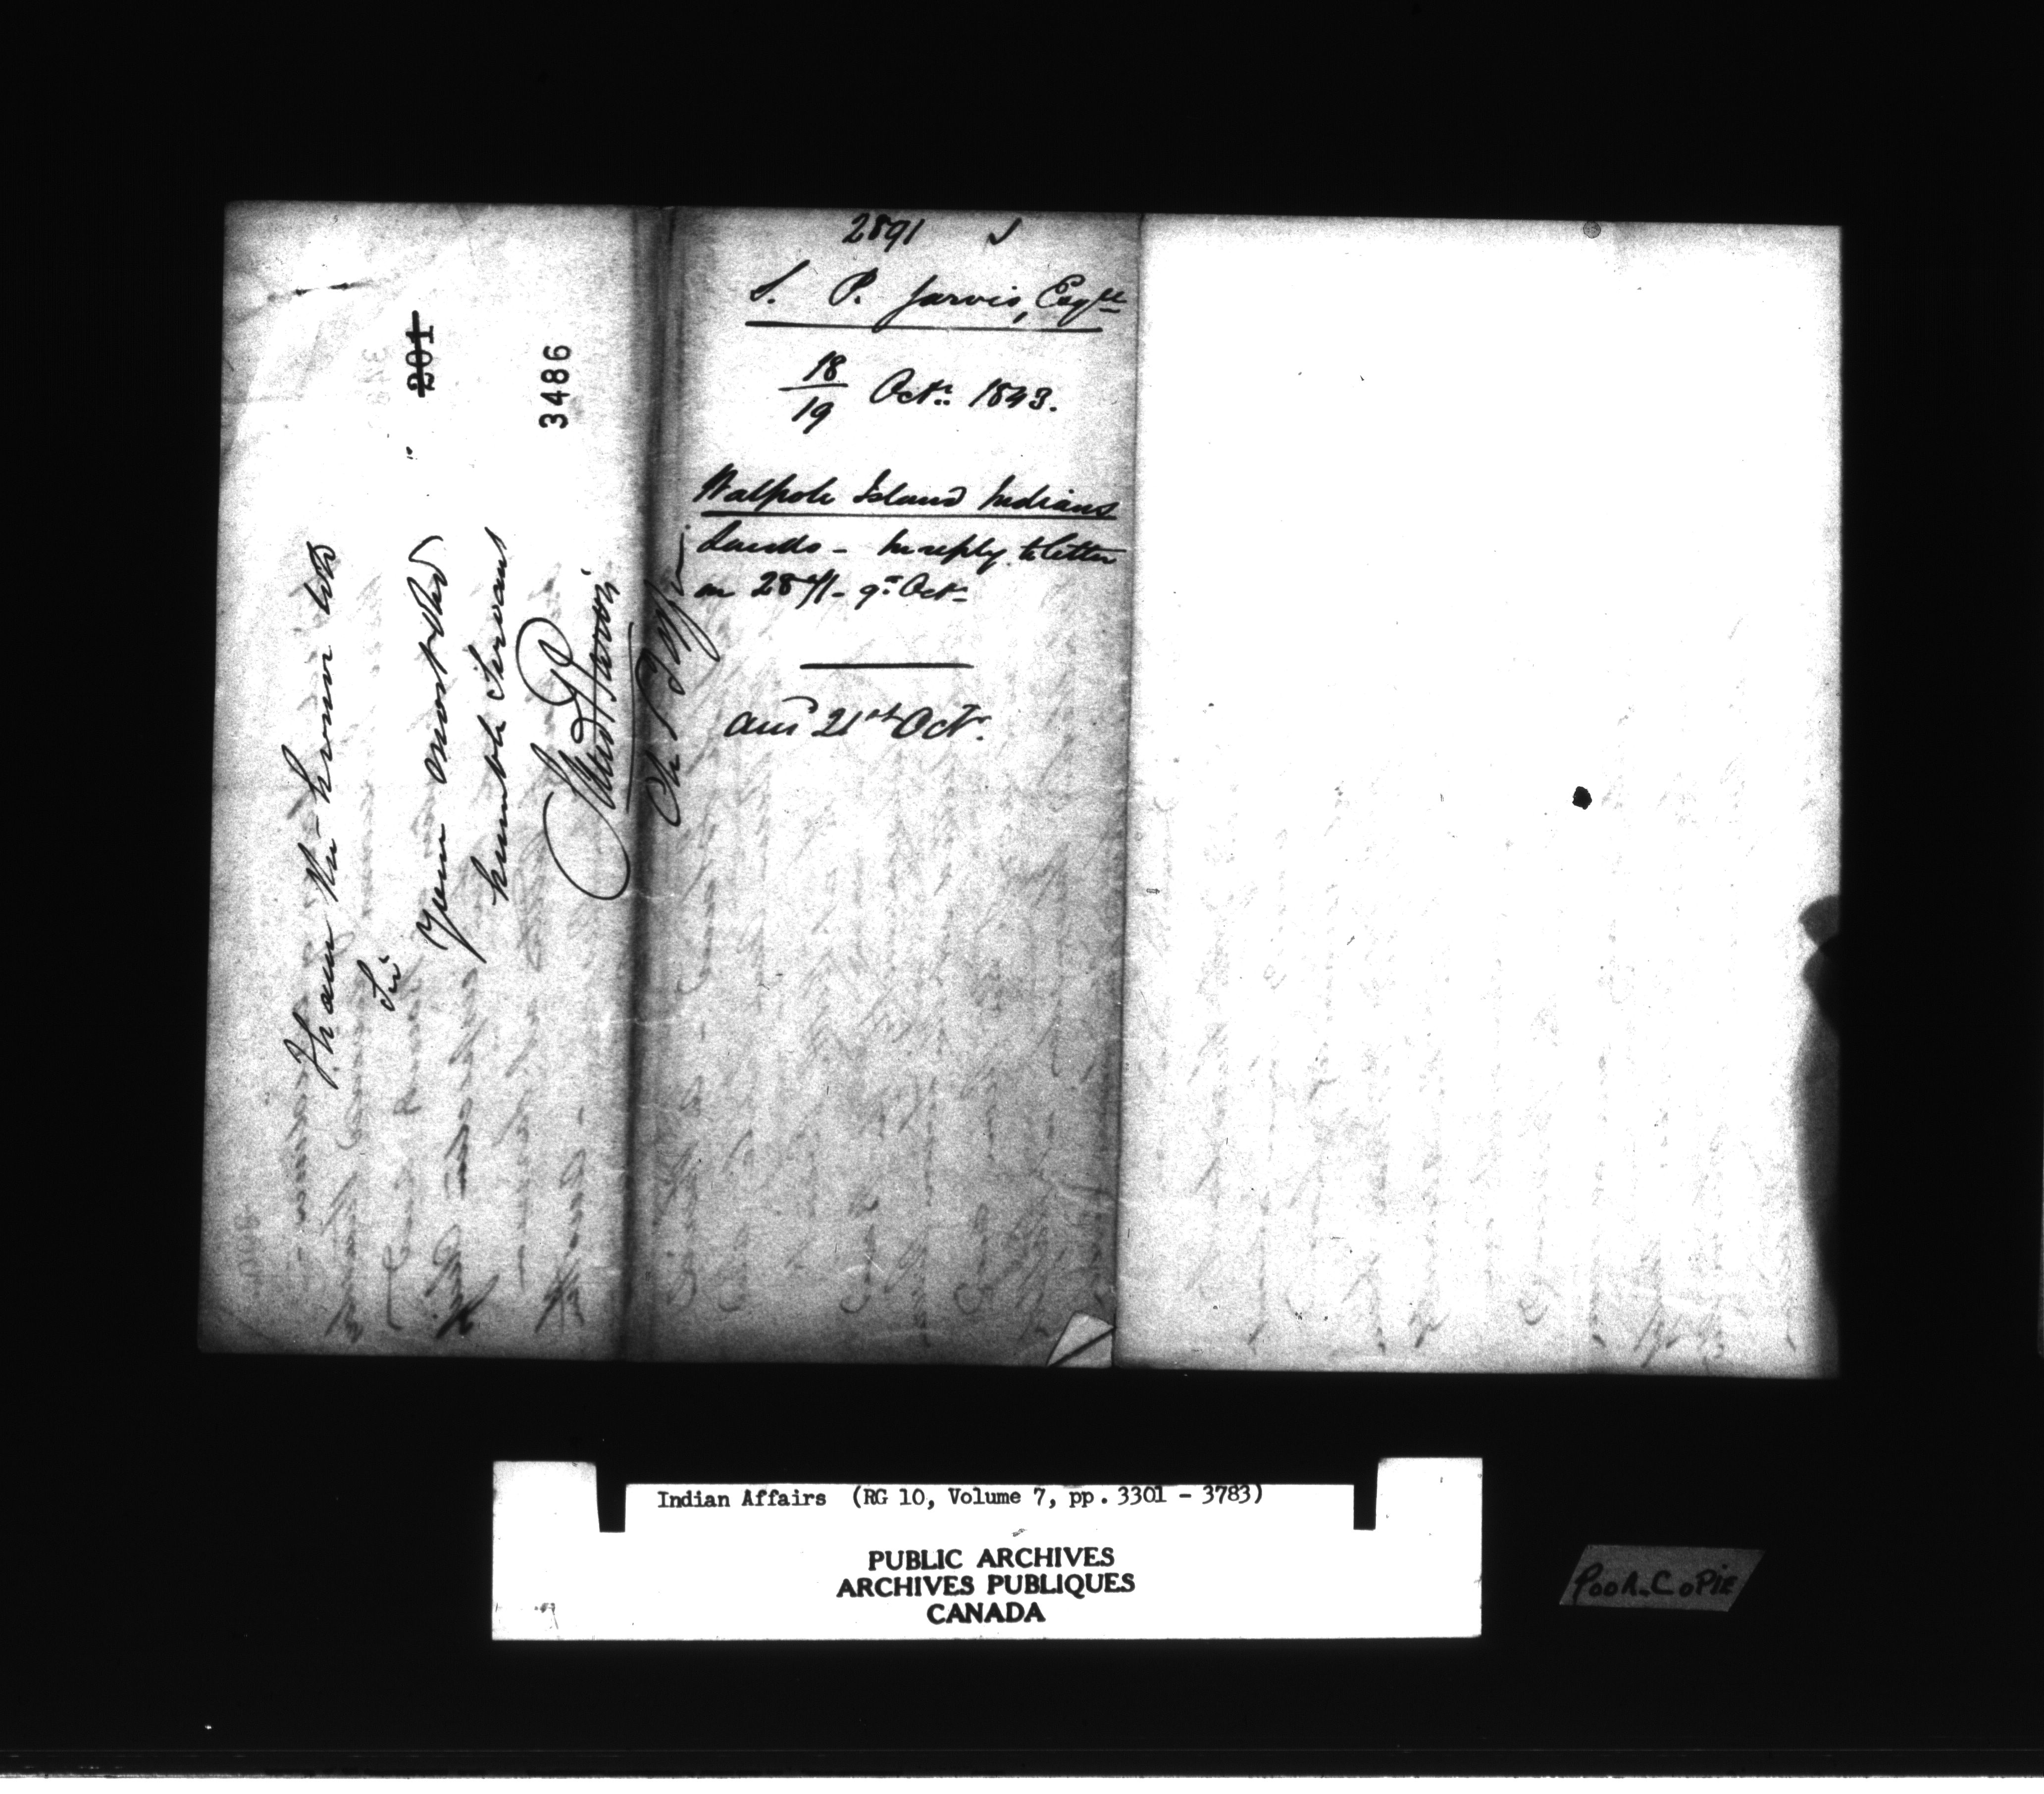 I have the honor to be
Sir
Your most obed
humble Servant
201
3486
2891 J
S. P. Jarvis, Esqre
18/19 Octr. 1843.
Walpole Island Indians
Lands - In reply to letter
on 2841 - 9th Octr
ansd 21st Octr.
Indian Affairs (RG 10, Volume 7, pp. 3301 - 3783)
PUBLIC ARCHIVES
ARCHIVES PUBLIQUES
CANADA
POOR COPIE